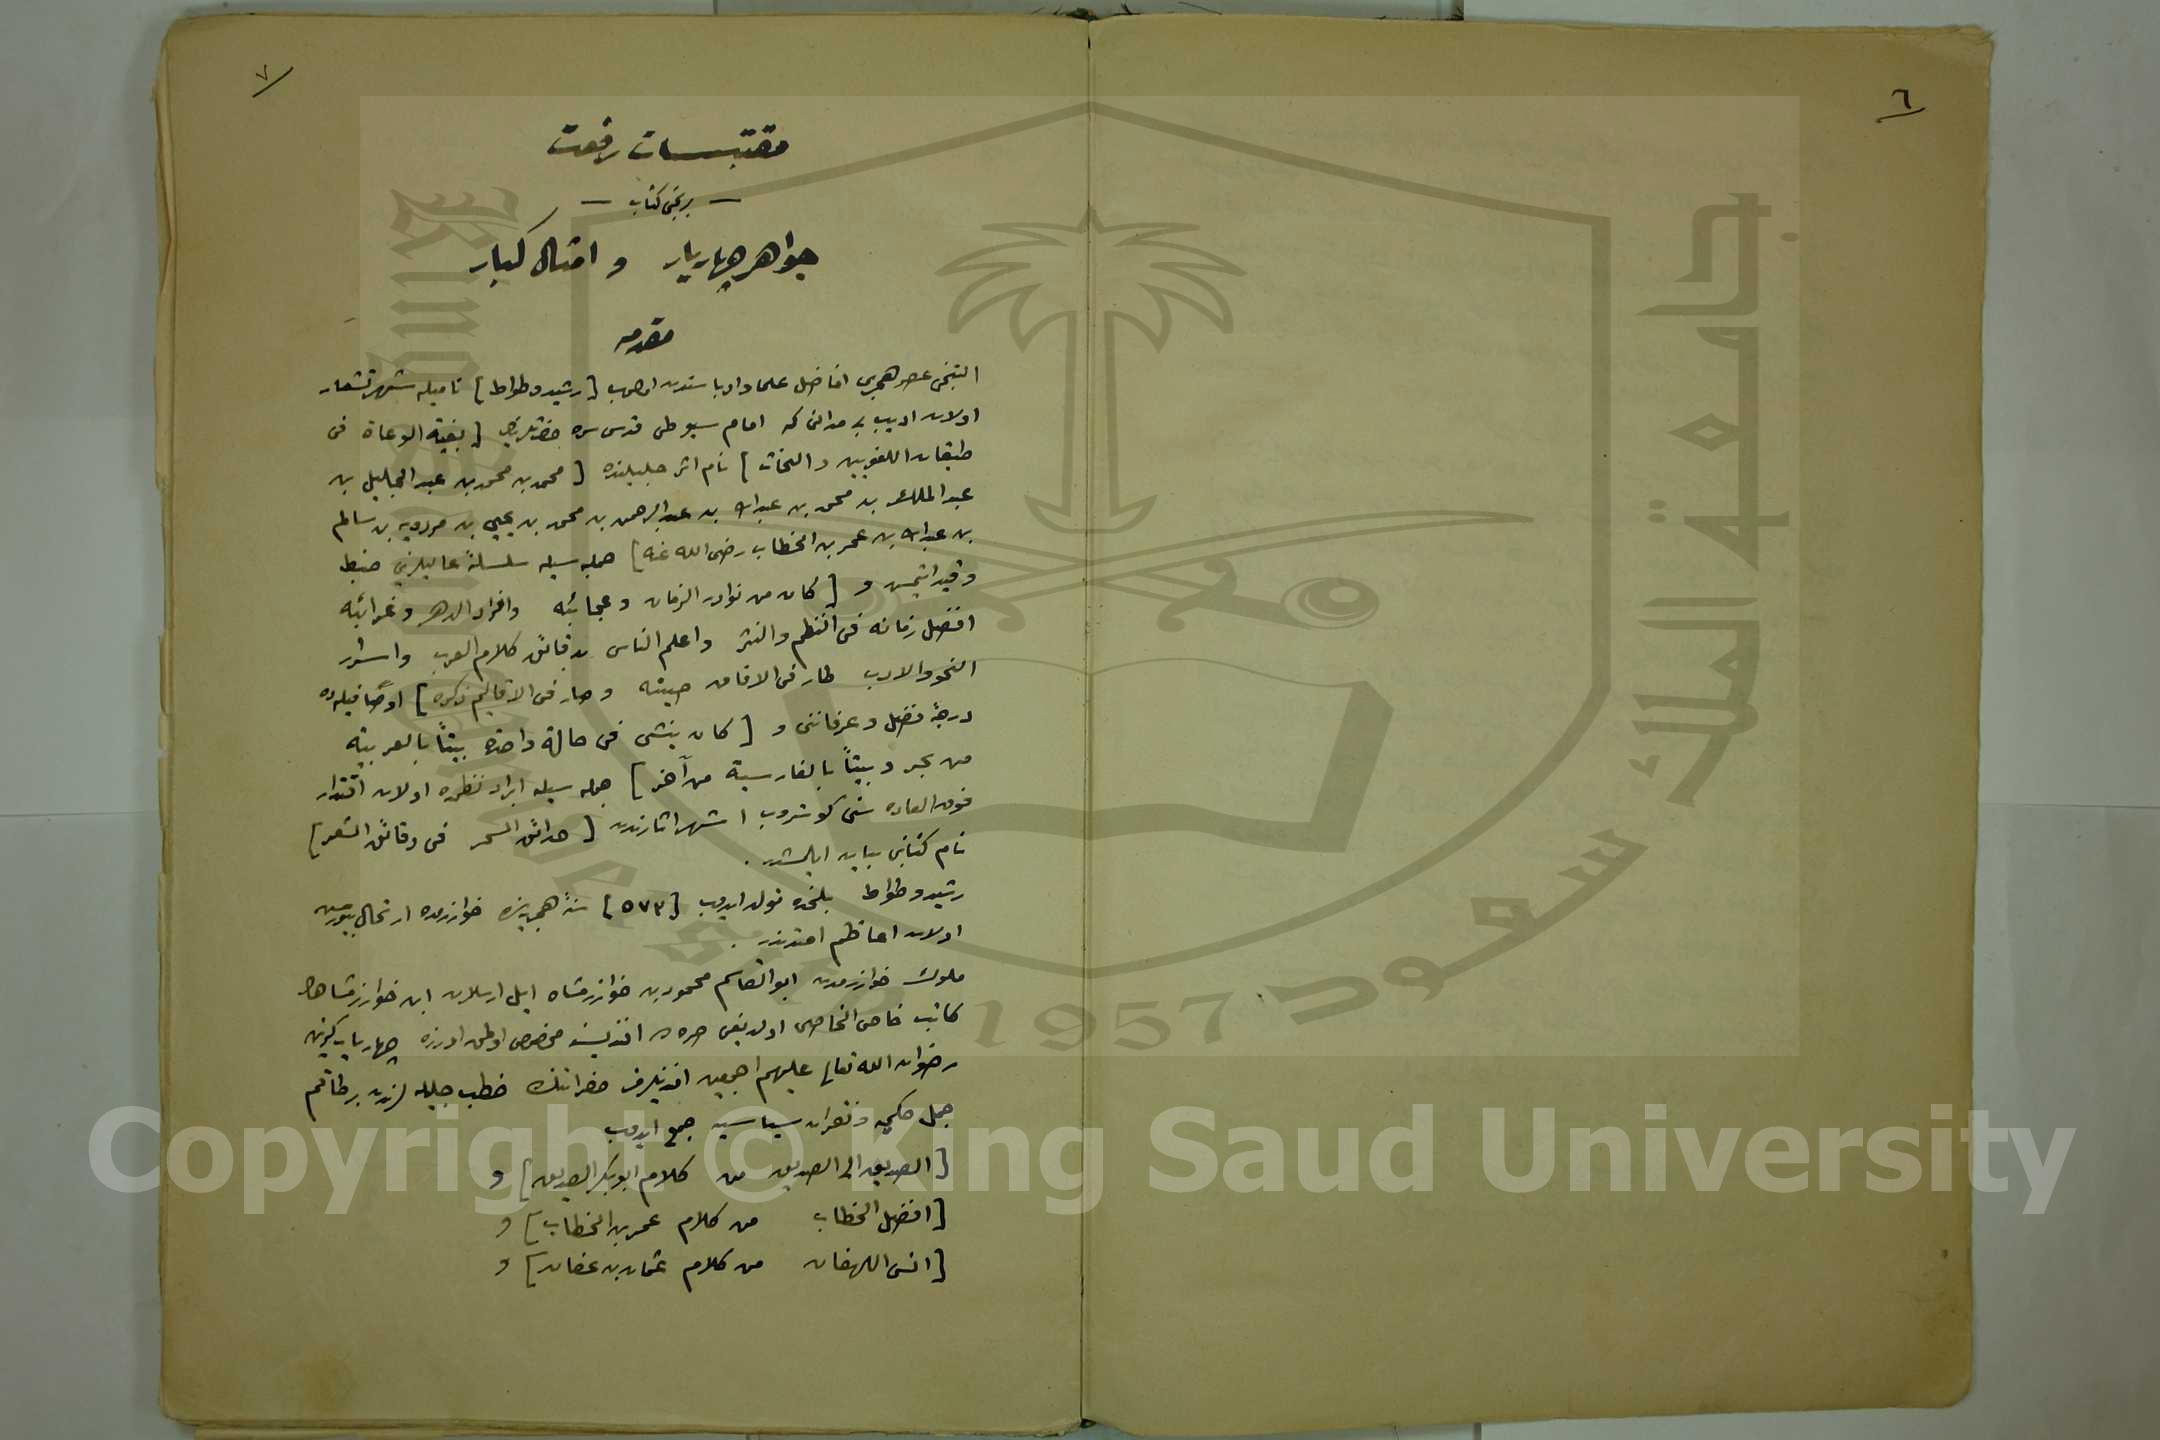 ٦
٧
مقتبسات رفعت
— برنجی كتاب —
جواهر چهاريار و امثال كبار
مقدمه
التنجی عصر هجری افاضل علما و ادباسندن اولوب [رشيد وطواط] ناميله شهرتشعار
اولان اديب كه امام سيوطی قدس سره حضرتلری [بغية الوعاة فی
طبقات اللغويين و النحات] نام اثر جليلنده [محمد بن محمد بن عبد الجليل بن
عبد الملك بن محمد بن عبد الله بن عبد الرحمن بن محمد بن يحيی بن مردويه بن سالم
بن عبد الله بن عمر بن الخطاب رضی الله عنه] جمله سيله سلسلۀ عاليلرينی ضبط
وقيد ايتمش و [كان من نوادر الزمان و عجائبه وافراد الدهر و غرائبه
افضل زمانه فی النظم والنثر واعلم الناس بدقائق كلام العرب واسرار
النحو والادب طار فی الافاق صيته و صار فی الاقاليم ذكره] اوصافيله ده
درجۀ فضل و عرفاننی و [كان ينشی فی حالة واحده بيتاً بالعربية
من بحر و بيتاً بالفارسية من آخر] جمله سيله ايراد نظمده اولان اقتدار
فوق العاده سنی كوستروب اشهر اثارندن [حدائق السحر فی دقائق الشعر]
نام كتابنی بيان ايلمشدر .
رشيد وطواط بلخده تولد ايدوب [٥٧٣] سنۀ هجريه سنده خوارزمده ارتحال
اولان اعاظم امتدندر .
ملوك خوارزمدن ابو القاسم محمود بن خوارزمشاه ايل ارسلان ابن خوارزمشاهك
كاتب خاص الخاصی اولديغی افنديسنه مخصوص اولمق اوزره چهاريار كزين
رضوان الله تعالی عليهم اجمعين افنديلريمز حضراتنك خطب جليله لرندن برطاقم
جمل حكميه و سياسيه جمع ايدوب
[الصديق الی الصديق من كلام ابوبكر الصديق] و
[افضل الخطاب من كلام عمر بن الخطاب] و
[انس اللهفان من كلام عثمان بن عفان] و
جامعة الملك سعود
1957
Copyright © King Saud University